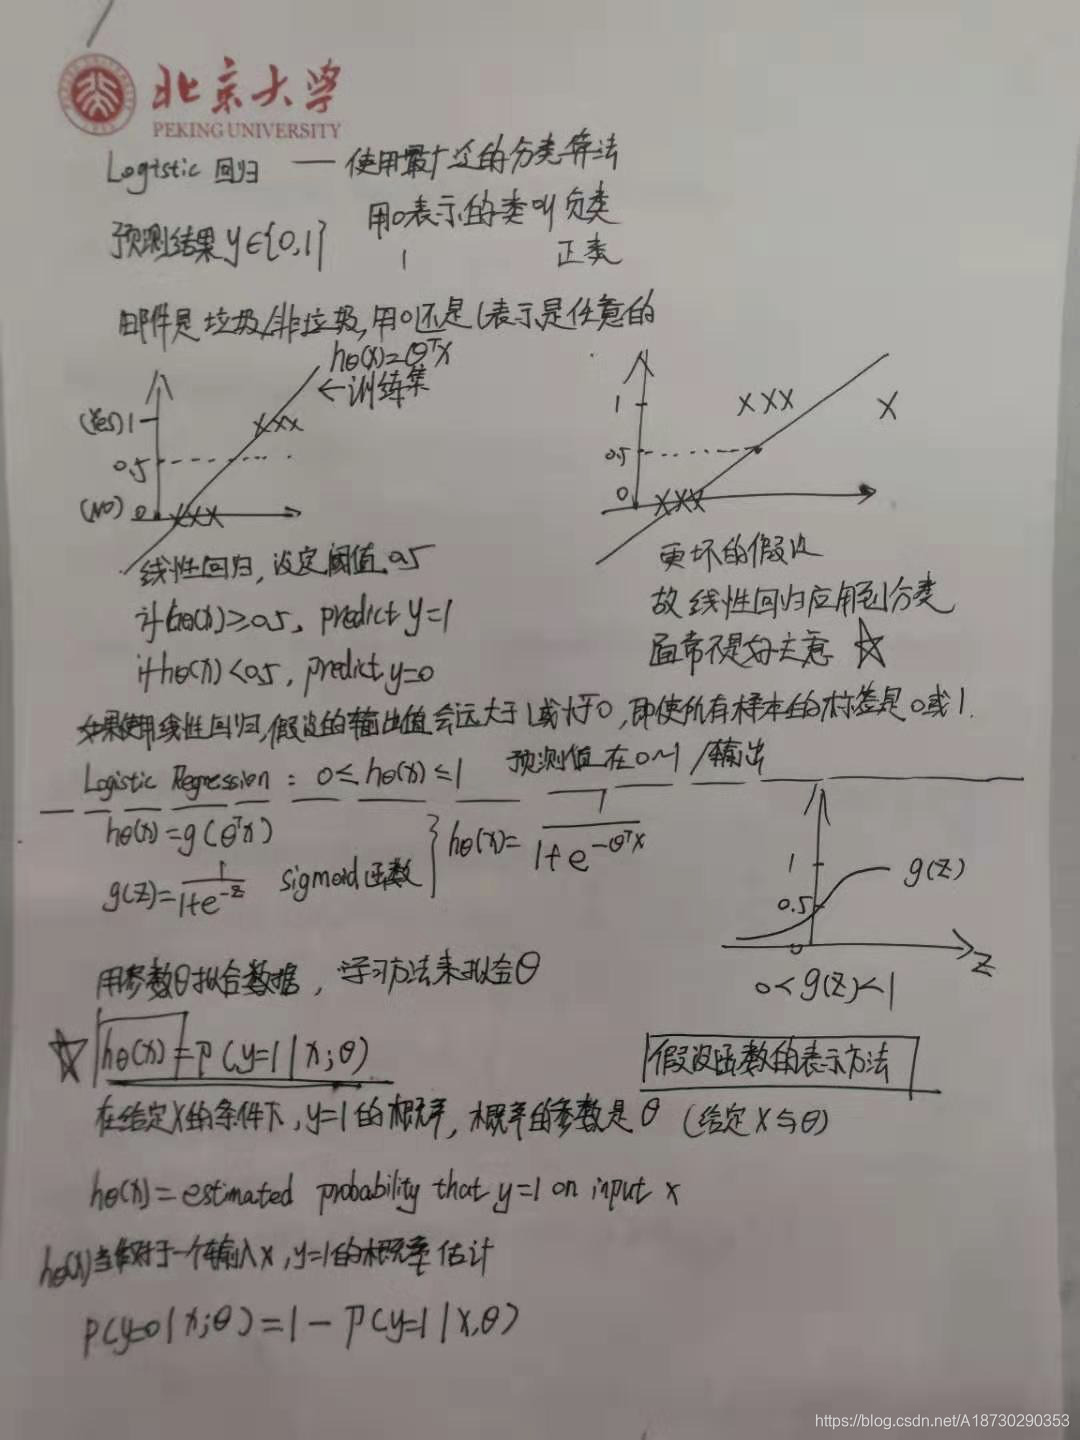 北京大学
PEKING UNIVERSITY
Logistic 回归 —— 使用最广泛的分类算法
用0表示的类叫负类
预测结果 y∈{0,1}
1 正类
邮件是垃圾/非垃圾,用0还是1表示是任意的
hθ(x)=θᵀx
←训练集
(Yes) 1
0.5
(NO) 0
1
0.5
0
线性回归,设定阈值0.5
if hθ(x)≥0.5, predict y=1
if hθ(x)<0.5, predict y=0
更坏的假设
故线性回归应用到分类
通常不是好主意 ☆
如果使用线性回归,假设的输出值会远大于1或小于0,即使所有样本的标签是0或1.
Logistic Regression: 0≤hθ(x)≤1 预测值在0~1/输出
hθ(x)=g(θᵀx)
g(z)=1/(1+e^-z) sigmoid函数
hθ(x)=1/(1+e^-θᵀx)
1
0.5
0
g(z)
z
0<g(z)<1
用参数θ拟合数据,学习方法来拟合θ
☆ hθ(x)=P(y=1|x;θ)
假设函数的表示方法
在给定x的条件下,y=1的概率,概率的参数是θ (给定x与θ)
hθ(x)=estimated probability that y=1 on input x
hθ(x)对于一个输入x,y=1的概率估计
P(y=0|x;θ)=1-P(y=1|x,θ)
https://blog.csdn.net/A18730290353